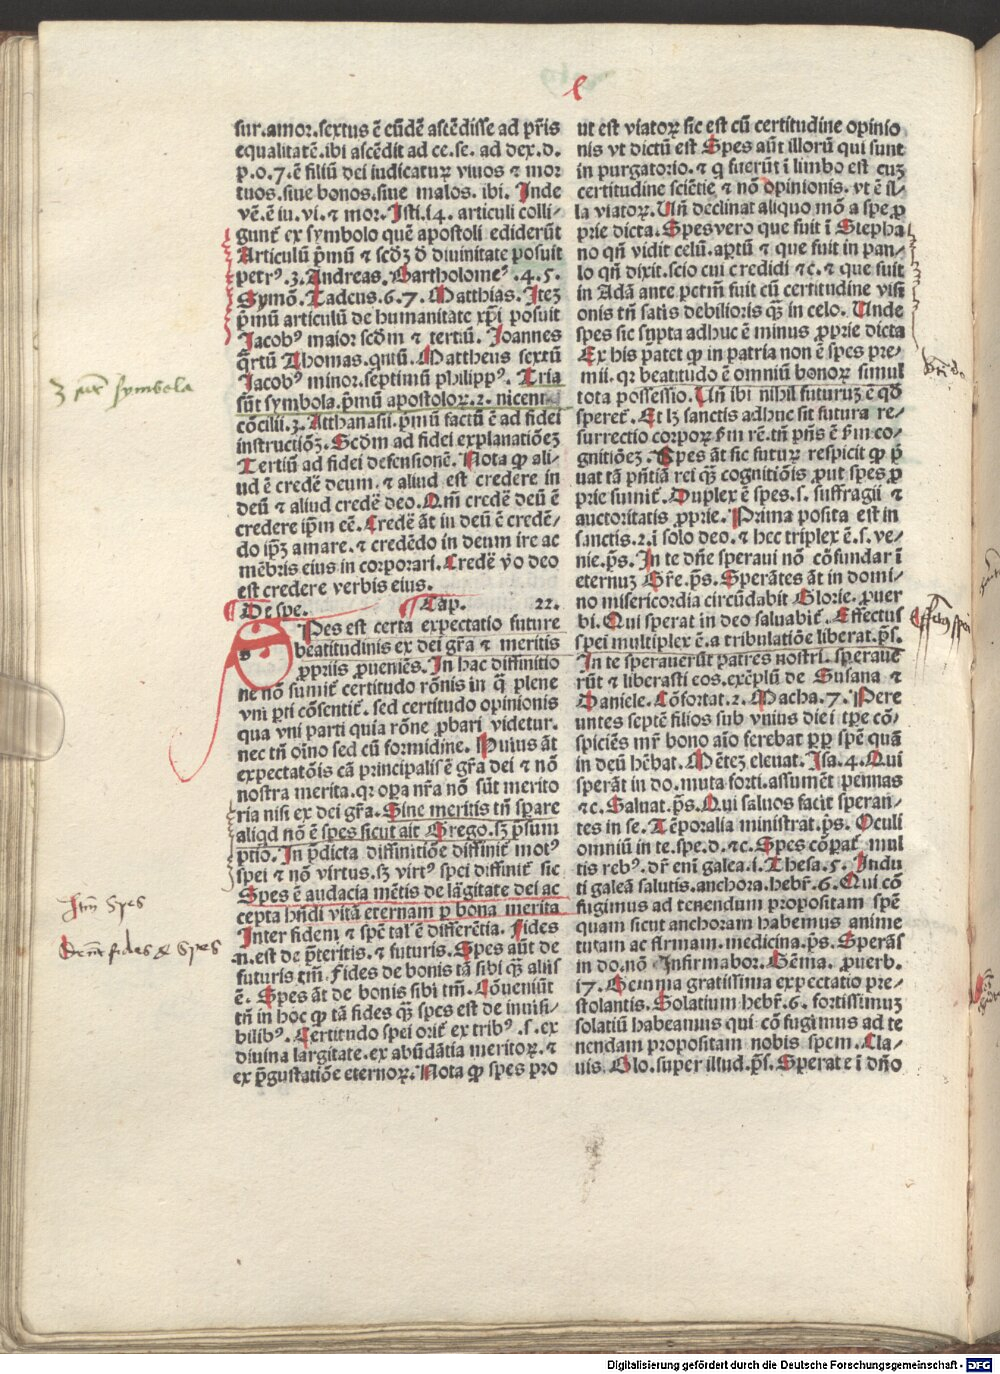 sur.amor.sextus ē eūdē ascēdisse ad pr̄is
equalitatē.ibi ascēdit ad ce.se. ad dex.d.
p.o.7.ē filiū dei iudicatuꝝ viuos ⁊ mor
tuos.siue bonos.siue malos. ibi. Inde
vē.ē iu.vi.⁊ mor. Isti.14. articuli colli-
gunt̄ ex symbolo quē apostoli ediderūt
Articulū p̄mū ⁊ scd̄ꝫ d̄ diuinitate posuit
petrꝰ.3.Andreas. Bartholomeꝰ.4.5.
Symō. Tadeus.6.7. Matthias. Iteꝫ
p̄mū articulū de humanitate xp̄i posuit
Jacobꝰ maior scd̄m ⁊ tertiū. Joannes
q̄rtū Thomas.quītū. Mattheus sextū
Jacobꝰ minor.septimū philippꝰ. Tria
sūt symbola.p̄mū apostoloꝝ.2.niceni
cōcilii.3. Atthanasii.p̄mū factū ē ad fidei
instructiōꝫ. Scd̄m ad fidei explanatiōeꝫ
Tertiū ad fidei defensionē. Nota ꝙ ali-
ud ē credē deum.⁊ aliud est credere in
deū ⁊ aliud credē deo. Qm̄ credē deū ē
credere ip̄m eē. Credē āt in deū ē credē-
do ip̄ꝫ amare.⁊ credēdo in deum ire ac
mēbris eius in corporari. Credē v̄o deo
est credere verbis eius.
De spe. Cap. 22.
Spes est certa expectatio future
beatitudinis ex dei gr̄a ⁊ meritis
ꝓpriis ꝓueniēs. In hac diffinitio
ne nō sumit̄ certitudo rōnis in q̄ plene
vni p̄ti cōsentit̄. sed certitudo opinionis
qua vni parti quia rōne ꝓbari videtur.
nec tn̄ oīno sed cū formidine. Huius āt
expectatōis cā principalis ē gr̄a dei ⁊ nō
nostra merita.qꝛ oꝑa nr̄a nō sūt merito
ria nisi ex dei gr̄a. Sine meritis tn̄ sꝑare
aliqd nō ē spes sicut ait Grego.sꝫ p̄sum
ptio. In p̄dicta diffinitiōe diffinit̄ motꝰ
spei ⁊ nō virtus.sꝫ virtꝰ spei diffinit̄ sic
Spes ē audacia mētis de lāgitate dei ac
cepta hn̄di vitā eternam ꝑ bona merita
Inter fidem ⁊ spē tal̄ ē differētia. Fides
.n.est de p̄teritis.⁊ futuris. Spes aūt de
futuris tm̄. Fides de bonis tā sibi qꝫ aliis
ē. Spes āt de bonis sibi tm̄. Cōueniūt
tn̄ in hoc ꝙ tā fides qꝫ spes est de inuisi-
bilibꝰ. Certitudo spei orit̄ ex tribꝰ.s.ex
diuina largitate.ex abūdātia meritoꝝ.⁊
ex p̄gustatiōe eternoꝝ. Nota ꝙ spes pro
ut est viatoꝝ sic est cū certitudine opinio
nis vt dictū est Spes aūt illorū qui sunt
in purgatorio.⁊ q̄ fuerūt ī limbo est cuꝫ
certitudine sciētie ⁊ nō opinionis.vt ē il-
la viatoꝝ. Un̄ declinat aliquo mō a spe ꝓ
prie dicta. Spes vero que fuit ī Stepha
no qn̄ vidit celū.aꝑtū ⁊ que fuit in pau-
lo qn̄ dixit.scio cui credidi ⁊c.⁊ que fuit
in Adā ante petm̄ fuit cū certitudine visi
onis tn̄ satis debilioris qꝫ in celo. Unde
spes sic supta adhuc ē minus ꝓprie dicta
Ex his patet ꝙ in patria non ē spes pre-
mii.qꝛ beatitudo ē omniū bonoꝝ simul
tota possessio. Un̄ ibi nihil futuruꝫ ē qd̄
speret̄. Et lꝫ sanctis adhuc sit futura re-
surrectio corpoꝝ ẜm rē.tn̄ p̄ns ē ẜm co-
gnitiōeꝫ. Spes āt sic futuꝝ respicit ꝙ p̄
uat tā p̄ntiā rei qꝫ cognitiōis prout spes ꝓ
prie sumit̄. Duplex ē spes.s. suffragii ⁊
auctoritatis ꝓprie. Prima posita est in
sanctis.2.i solo deo.⁊ hec triplex ē.s.ve-
nie.ps̄. In te dn̄e speraui nō cōfundar ī
eternuꝫ Gr̄e.ps̄. Sperātes āt in domi-
no misericordia circūdabit Glorie.ꝓuer
bi. Qui sperat in deo saluabit̄. Effectus
spei multiplex ē.a tribulatiōe liberat.ps̄.
In te sperauerūt patres nostri. speraue
rūt ⁊ liberasti eos.exēplū de Susana ⁊
Daniele. Cōfortat.2. Macha.7. Pere
untes septē filios sub vnius diei tp̄e cō-
spiciēs mr̄ bono aīo ferebat ꝓp̄ spē quā
in deū hēbat. Mēteꝫ eleuat. Isa.4. Qui
sperāt in do.muta.forti.assumēt pennas
⁊c. Saluat.ps̄. Qui saluos facit speran-
tes in se. Tēporalia ministrat.ps̄. Oculi
omniū in te.spe.d.⁊c. Spes cōpat̄ mul
tis rebꝰ.dr̄ enī galea.i. Thesa.5. Indu
ti galeā salutis.anchora.hebr̄.6. Qui cō
fugimus ad tenendum propositam spē
quam sicut anchoram habemus anime
tutam ac firmam.medicina.ps̄. Sperās
in do.nō Infirmabor. Gēma. ꝓuerb.
17. Gemma gratissima expectatio pre-
stolantis. Solatium hebr̄.6. fortissimuꝫ
solatiū habeamus qui cō fugimus ad te
nendam propositam nobis spem. Cla-
uis. Glo.super illud.ps̄. Sperate ī dn̄o
symbola
Spes
fides & Spes
Digitalisierung gefördert durch die Deutsche Forschungsgemeinschaft - DFG